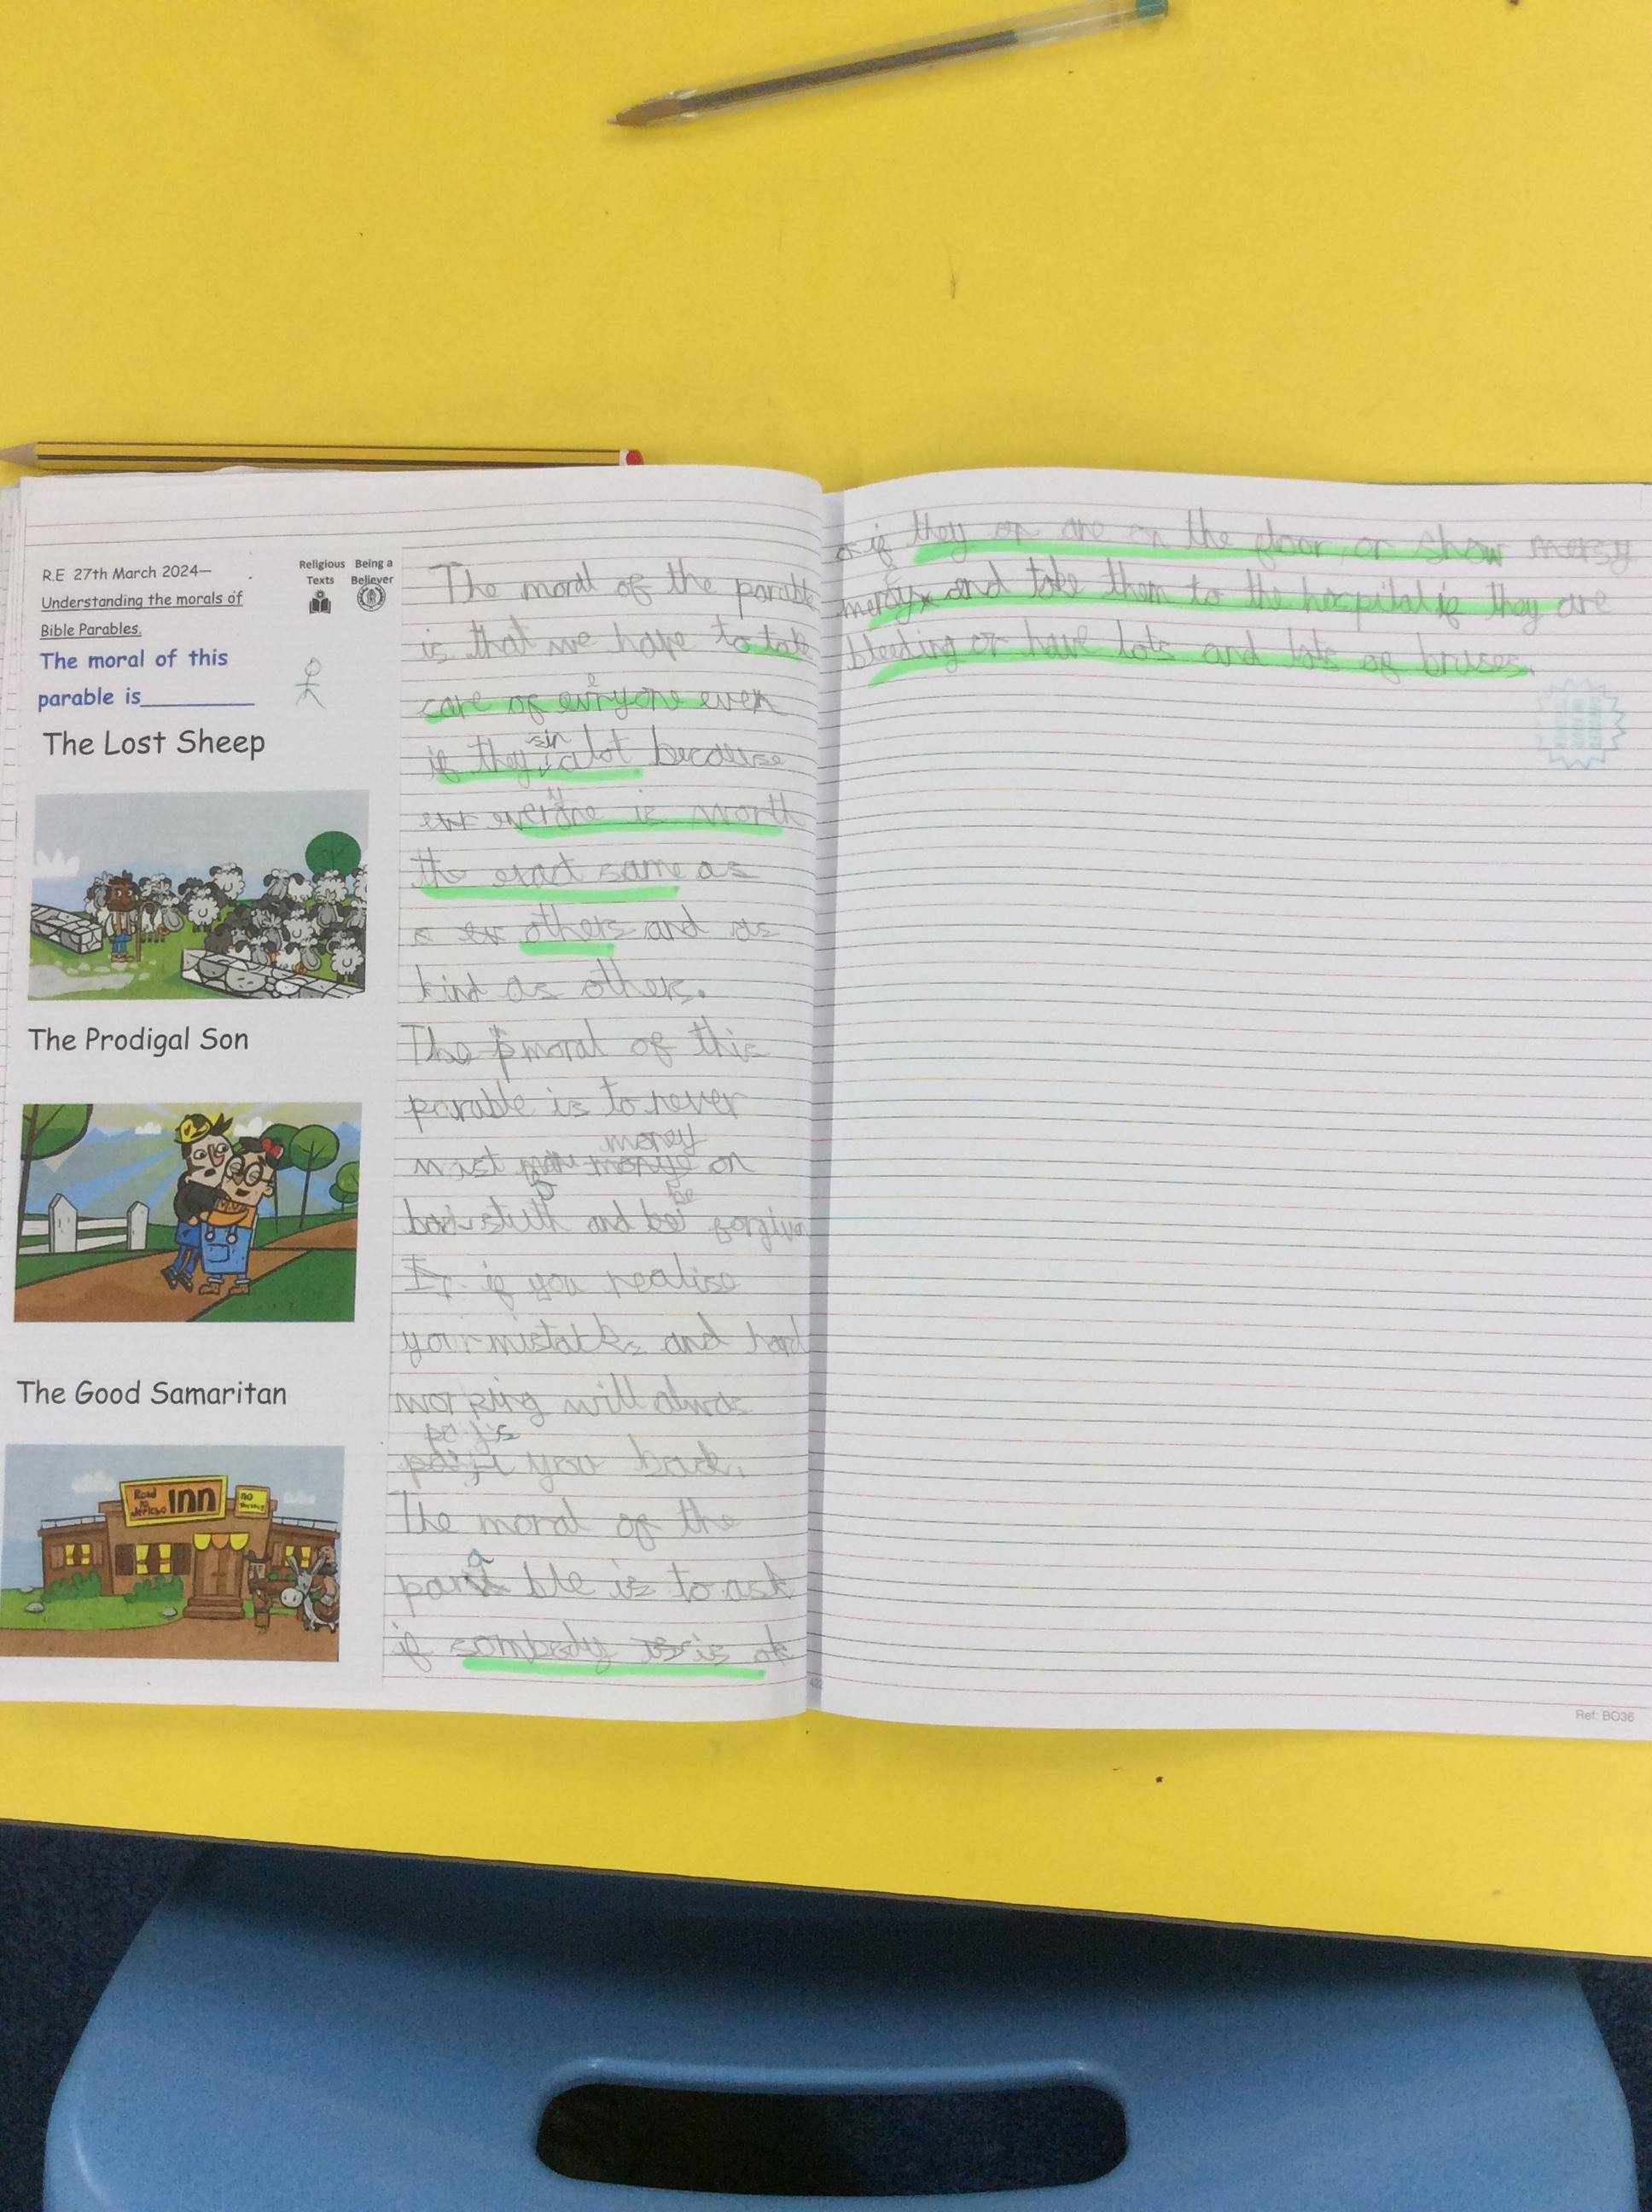 R.E 27th March 2024—
Understanding the morals of
Bible Parables.
Religious Being a
Texts Believer
The moral of this
parable is________
The Lost Sheep
The Prodigal Son
The Good Samaritan
Road
to
Jericho INN
NO
The moral of the parable
is that we have to take
care of evryone even
e
if they a lot because
sin
everone is worth
y
the exact same as
others and as
kind as others.
The moral of this
parable is to never
money
on
bad stuth and be forgive
be
if you realise
your mistacks and hard
working will alwas
pays
you back.
The moral of the
a
par ble is to ask
if sombody is ok
if they are on the floor, or show mersy
mercy and take them to the hospital if they are
c
bleeding or have lots and lots of bruses.
Ref: BO36